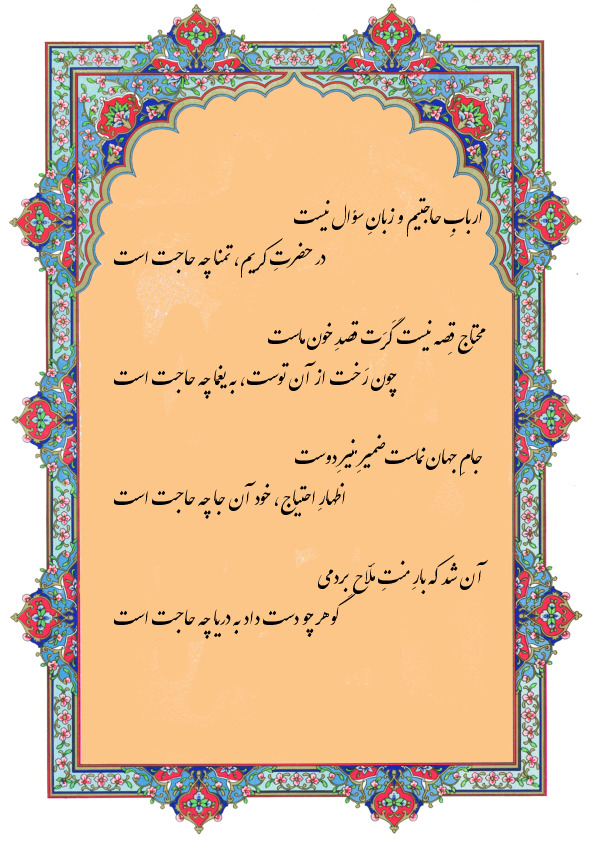 اربابِ حاجتیم و زبانِ سؤال نیست
در حضرتِ کریم، تمنا چه حاجت است
محتاج قِصه نیست گَرَت قصدِ خون ماست
چون رَخت از آن توست، به یغما چه حاجت است
جامِ جهان نماست ضمیرِ منیرِ دوست
اظهارِ احتیاج، خود آن جا چه حاجت است
آن شد که بارِ منتِ ملّاح بردمی
گوهر چو دست داد به دریا چه حاجت است